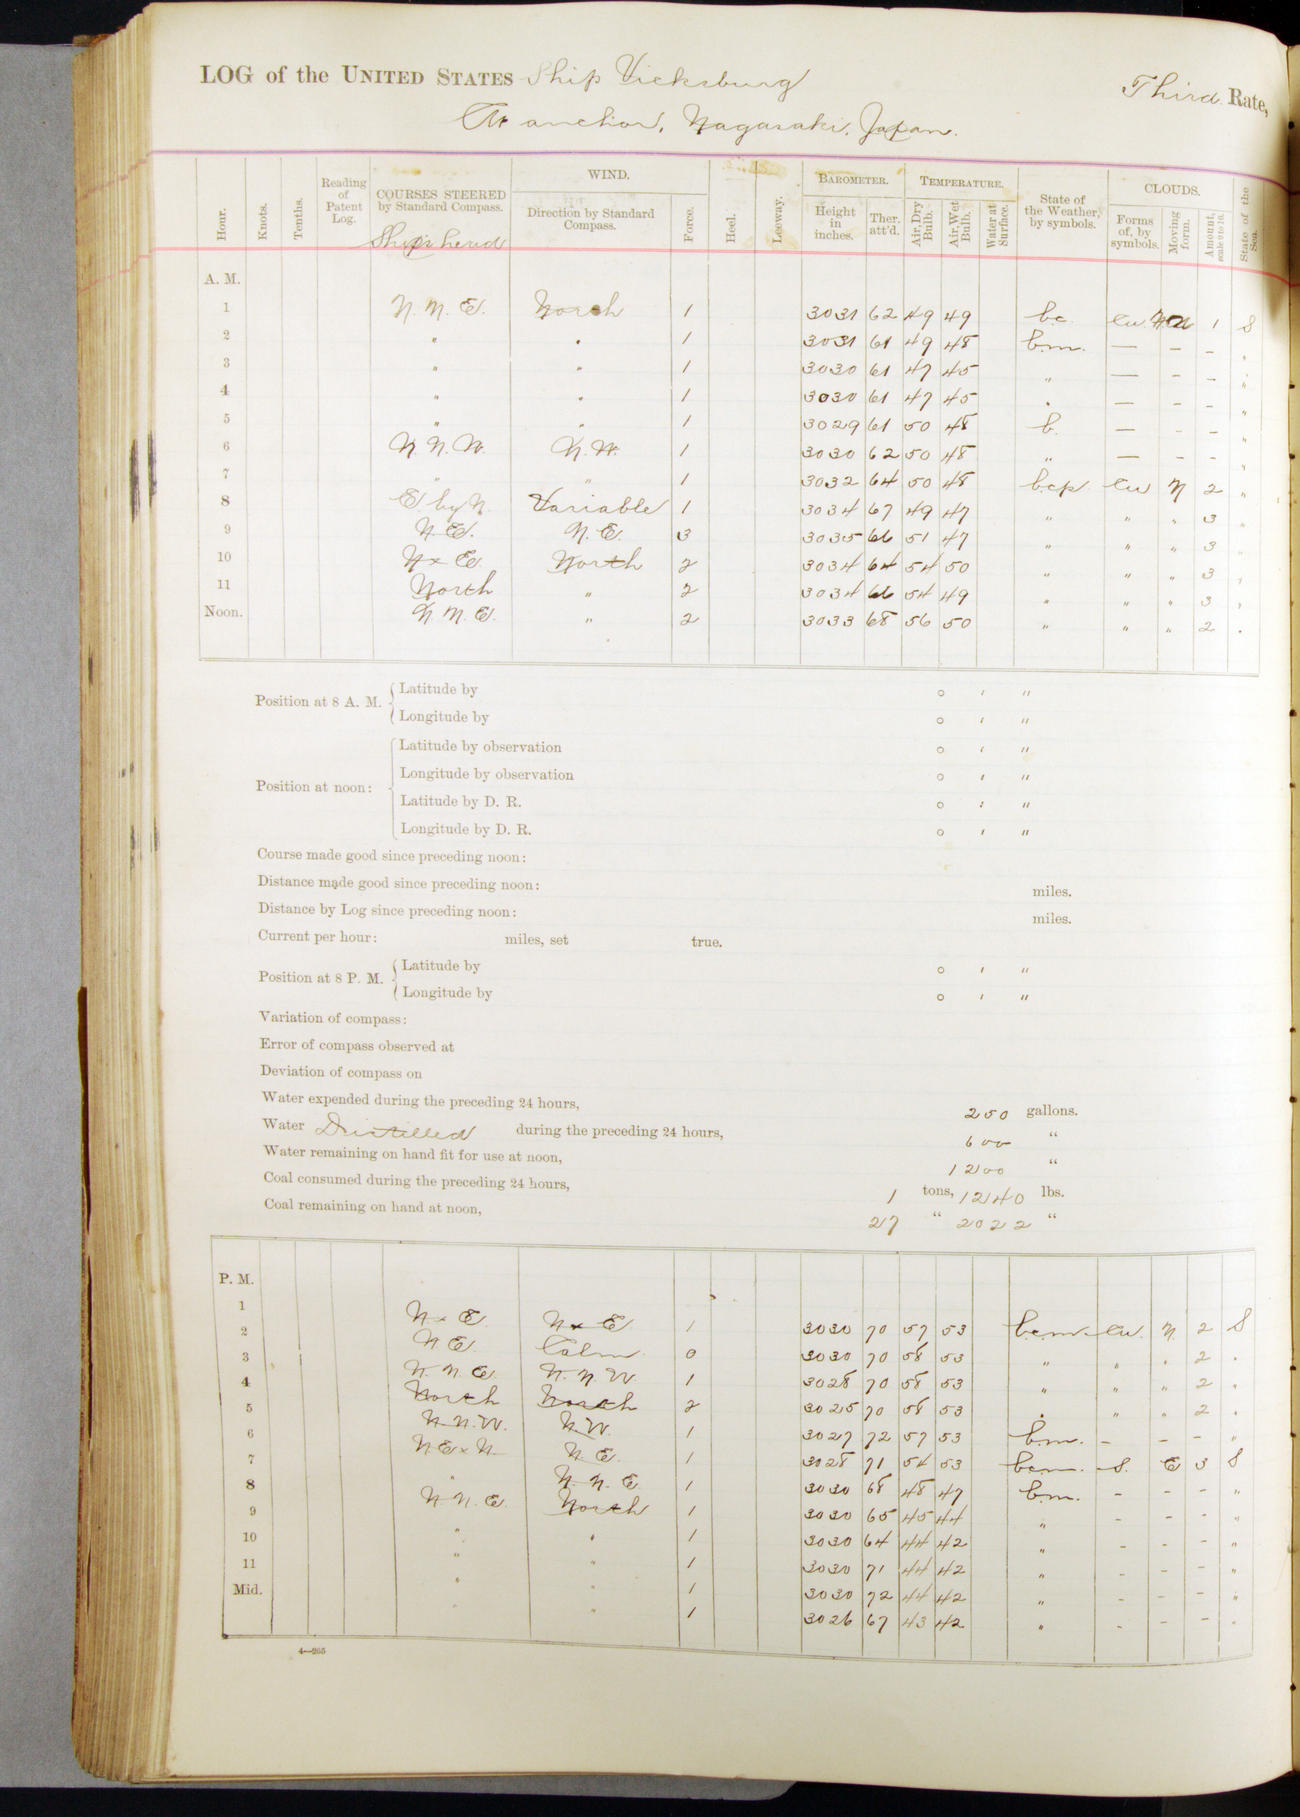 LOG of the UNITED STATES Ship Vicksburg Third Rate,
At anchor, Nagasaki, Japan.
Hour. Knots. Tenths. Reading of Patent Log. COURSES STEERED by Standard Compass. Ship's head WIND. Direction by Standard Compass. Force. Heel. Leeway. BAROMETER. Height in inches. Ther. att'd. TEMPERATURE. Air, Dry Bulb. Air, Wet Bulb. Water at Surface. State of the Weather, by symbols. CLOUDS. Forms of, by symbols. Moving form. Amount, scale 0 to 10. State of the Sea.
A. M.
1 N.N.E. North 1 3031 62 49 49 bc. cu. 1 S
2 " " 1 3031 61 49 48 b.m. — – – "
3 " " 1 3030 61 47 45 " — – – "
4 " " 1 3030 61 47 45 " — – – "
5 " " 1 3029 61 50 48 b. — – – "
6 N.N.W. N.W. 1 3030 62 50 48 " — – – "
7 " " 1 3032 64 50 48 bcp. cu N 2 "
8 E by N. Variable 1 3034 67 49 47 " " " 3 "
9 N.E. N.E. 3 3035 66 51 47 " " " 3 "
10 N x E. North 2 3034 64 54 50 " " " 3 "
11 North " 2 3034 66 54 49 " " " 3 "
Noon. N.N.E. " 2 3033 68 56 50 " " " 2 "
Position at 8 A. M. { Latitude by ° ′ ″
Longitude by ° ′ ″
Position at noon: Latitude by observation ° ′ ″
Longitude by observation ° ′ ″
Latitude by D. R. ° ′ ″
Longitude by D. R. ° ′ ″
Course made good since preceding noon:
Distance made good since preceding noon: miles.
Distance by Log since preceding noon: miles.
Current per hour: miles, set true.
Position at 8 P. M. { Latitude by ° ′ ″
Longitude by ° ′ ″
Variation of compass:
Error of compass observed at
Deviation of compass on
Water expended during the preceding 24 hours, 250 gallons.
Water Distilled during the preceding 24 hours, 600 "
Water remaining on hand fit for use at noon, 1200 "
Coal consumed during the preceding 24 hours, 1 tons, 1240 lbs.
Coal remaining on hand at noon, 27 " 2022 "
P. M.
1 N x E. N x E. 1 3030 70 57 53 bcm. cu. N. 2 S
2 N E. Calm 0 3030 70 58 53 " " " 2 "
3 N.N.E. N.N.W. 1 3028 70 58 53 " " " 2 "
4 North North 2 3025 70 58 53 " " " 2 "
5 N.N.W. N.W. 1 3027 72 57 53 b.m. – – – "
6 N E x N. N.E. 1 3028 71 54 53 bcm. S. E 3 S
7 " N.N.E. 1 3030 68 48 47 b.m. – – – "
8 N.N.E. North 1 3030 65 45 44 " – – – "
9 " " 1 3030 64 44 42 " – – – "
10 " " 1 3030 71 44 42 " – – – "
11 " " 1 3030 72 44 42 " – – – "
Mid. " " 1 3026 67 43 42 " – – – "
4—265